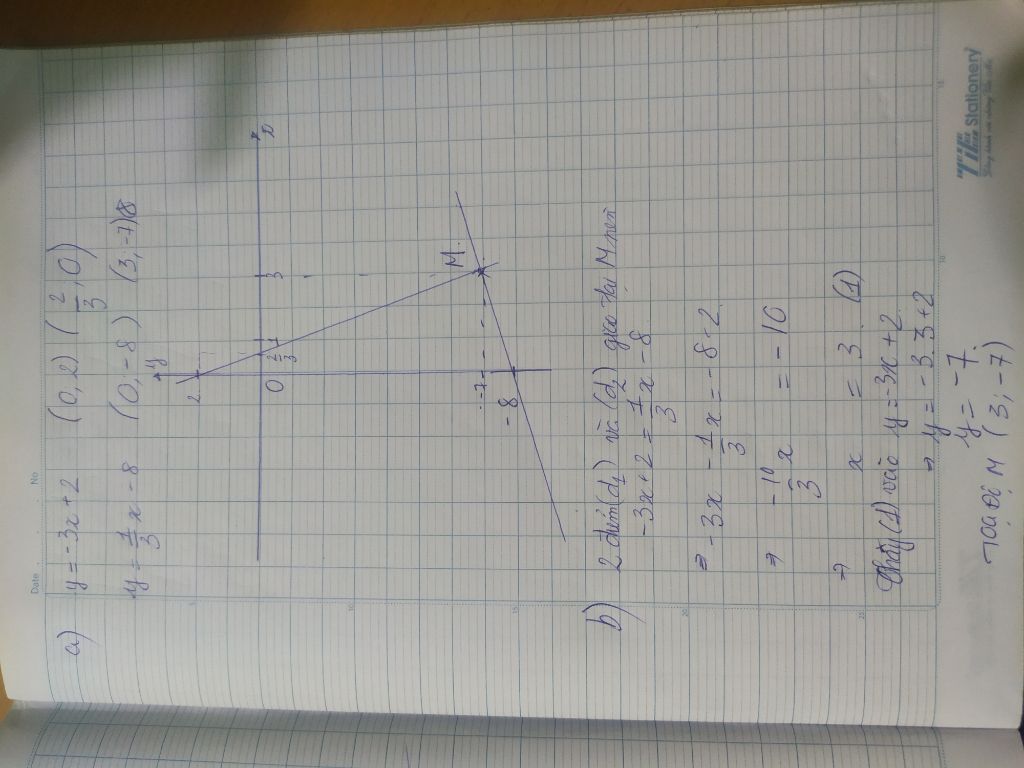 Date No
a) y = -3x + 2 (0, 2) (2/3, 0)
y = 1/3 x - 8 (0, -8) (3, -7)
y
2
O 2/3 1 3 x
-7
-8
M
b) 2 điểm (d₁) và (d₂) giao tại M nên
-3x + 2 = 1/3 x - 8
⇒ -3x - 1/3 x = -8 - 2
⇒ -10/3 x = -10
⇒ x = 3 (1)
Thay (1) vào y = -3x + 2
⇒ y = -3.3 + 2
y = -7
TOẠ ĐỘ M (3; -7)
5
10
15
20
25
10
15
TIE Stationery